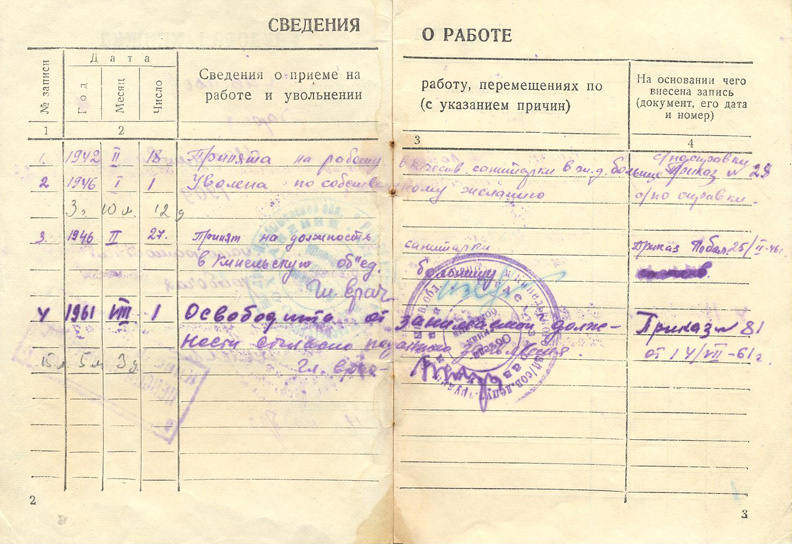 СВЕДЕНИЯ О РАБОТЕ
№ записи
Дата
Год
Месяц
Число
Сведения о приеме на
работе и увольнении
работу, перемещениях по
(с указанием причин)
На основании чего
внесена запись
(документ, его дата
и номер)
1 2 3 4
1. 1942 II 18 Принята на работу в качес. санитарки в ж.д. больницу Приказ № 28
с/по справки
2 1946 I 1 Уволена по собственному желанию с/по справки.
3 г 10 м 12 д
3. 1946 II 27. Принят на должность санитарки Приказ 25/II-46г.
в Кинельскую об"ед. больницу
Гл врач
4 1961 VIII 1 Освободить от занимаемой долж- Приказ № 81
ности согласно поданного заявления. от 14/VII-61г.
15 л 5 м 3 д Гл. врач
2
3